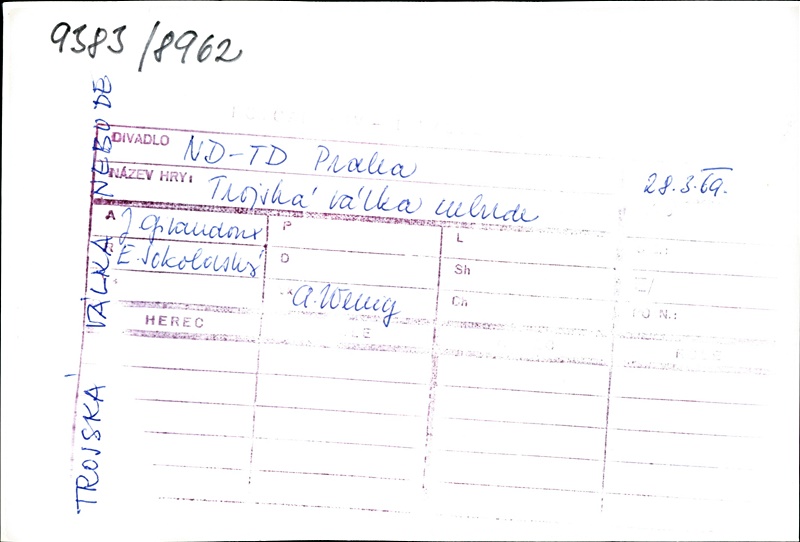 9383/8962
TROJSKÁ VÁLKA NEBUDE
DIVADLO ND-TD Praha
28.3.69.
NÁZEV HRY: Trojská válka nebude
A J Giraudoux P L
E. Sokolovský O Sh
A. Wenig Ch
HEREC